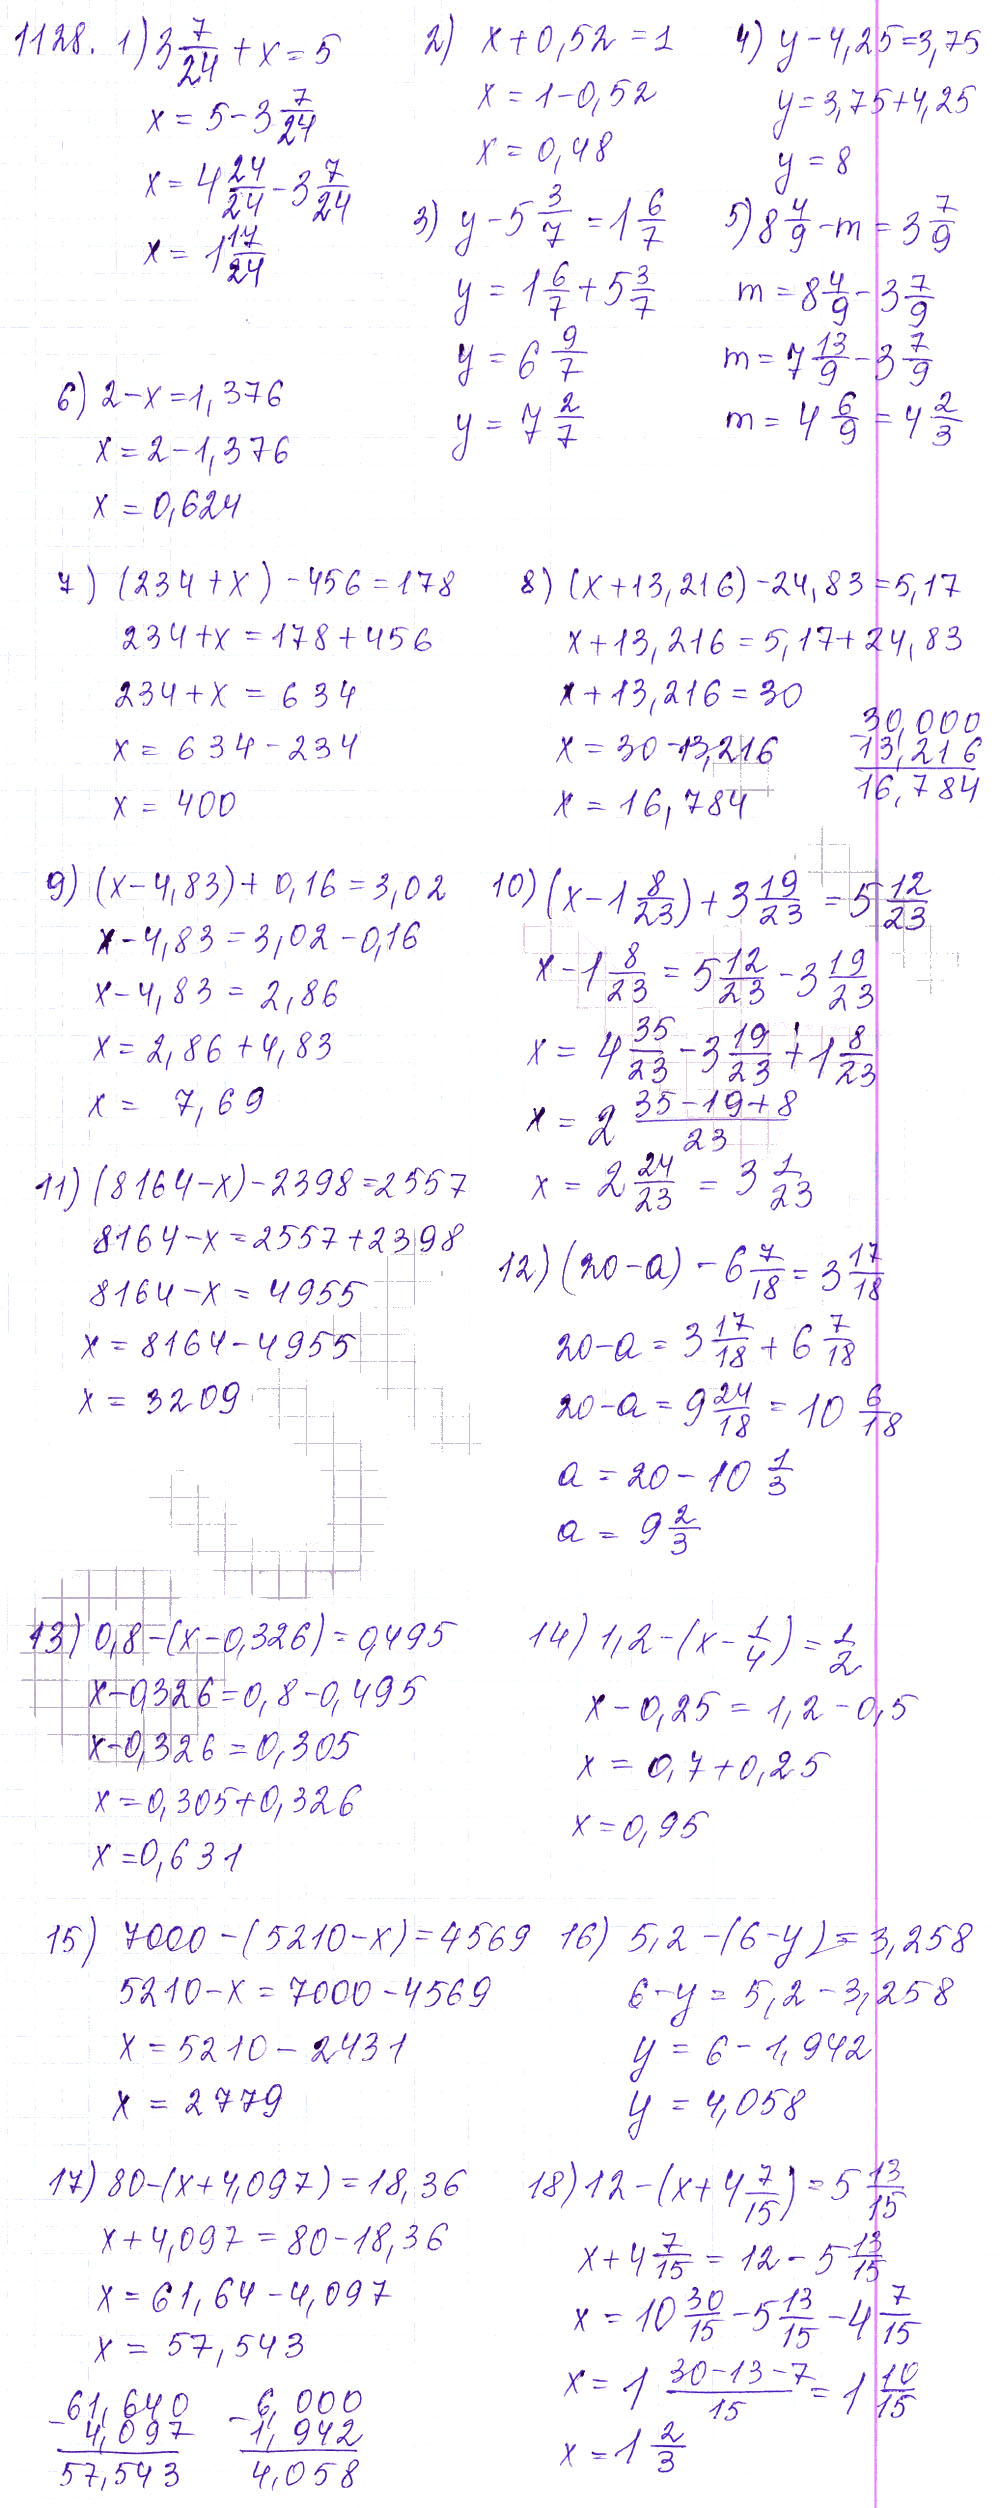 1128. 1) 3 7/24 + x = 5
x = 5 - 3 7/24
x = 4 24/24 - 3 7/24
x = 1 17/24
2) x + 0,52 = 1
x = 1 - 0,52
x = 0,48
4) y - 4,25 = 3,75
y = 3,75 + 4,25
y = 8
3) y - 5 3/7 = 1 6/7
y = 1 6/7 + 5 3/7
y = 6 9/7
y = 7 2/7
5) 8 4/9 - m = 3 7/9
m = 8 4/9 - 3 7/9
m = 7 13/9 - 3 7/9
m = 4 6/9 = 4 2/3
6) 2 - x = 1,376
x = 2 - 1,376
x = 0,624
7) (234 + x) - 456 = 178
234 + x = 178 + 456
234 + x = 634
x = 634 - 234
x = 400
8) (x + 13,216) - 24,83 = 5,17
x + 13,216 = 5,17 + 24,83
x + 13,216 = 30
x = 30 - 13,216
x = 16,784
30,000
13,216
16,784
9) (x - 4,83) + 0,16 = 3,02
x - 4,83 = 3,02 - 0,16
x - 4,83 = 2,86
x = 2,86 + 4,83
x = 7,69
10) (x - 1 8/23) + 3 19/23 = 5 12/23
x - 1 8/23 = 5 12/23 - 3 19/23
x = 4 35/23 - 3 19/23 + 1 8/23
x = 2 35-19+8/23
x = 2 24/23 = 3 1/23
11) (8164 - x) - 2398 = 2557
8164 - x = 2557 + 2398
8164 - x = 4955
x = 8164 - 4955
x = 3209
12) (20 - a) - 6 7/18 = 3 17/18
20 - a = 3 17/18 + 6 7/18
20 - a = 9 24/18 = 10 6/18
a = 20 - 10 1/3
a = 9 2/3
13) 0,8 - (x - 0,326) = 0,495
x - 0,326 = 0,8 - 0,495
x - 0,326 = 0,305
x = 0,305 + 0,326
x = 0,631
14) 1,2 - (x - 1/4) = 1/2
x - 0,25 = 1,2 - 0,5
x = 0,7 + 0,25
x = 0,95
15) 7000 - (5210 - x) = 4569
5210 - x = 7000 - 4569
x = 5210 - 2431
x = 2779
16) 5,2 - (6 - y) = 3,258
6 - y = 5,2 - 3,258
y = 6 - 1,942
y = 4,058
17) 80 - (x + 4,097) = 18,36
x + 4,097 = 80 - 18,36
x = 61,64 - 4,097
x = 57,543
61,640
- 4,097
57,543
6,000
- 1,942
4,058
18) 12 - (x + 4 7/15) = 5 13/15
x + 4 7/15 = 12 - 5 13/15
x = 10 30/15 - 5 13/15 - 4 7/15
x = 1 30-13-7/15 = 1 10/15
x = 1 2/3